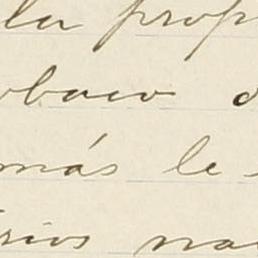 la prop
obaco d
más le
rios na